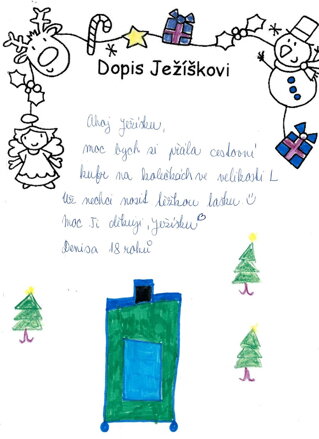 Dopis Ježíškovi
Ahoj Ježíšku,
moc bych si přála cestovní
kufr na kolečkách ve velikosti L
Už nechci nosit těžkou tašku
Moc Ti děkuji, Ježíšku
Denisa 18 roků